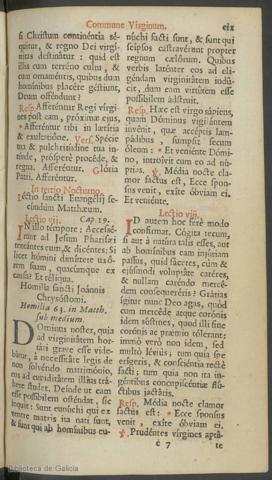 Commune Virginum. cix
si Christum continéntia séquitur,
& regno Dei virginitas
destinátur : quid est
illis cum terréno cultu, &
cum ornaméntis, quibus dum
homínibus placére géstiunt,
Deum offéndunt ?
Resp. Afferéntur Regi vírgines
post eam, próximæ ejus,
* Afferéntur tibi in lætítia
& exultatióne. Vers. Spécie
tua & pulchritúdine tua inténde,
próspere procéde, &
regna. Afferéntur. Glória
Patri. Afferéntur.
In tertio Nocturno.
Léctio sancti Evangélij secúndum
Matthæum.
Lectio vij. Cap. 19.
IN illo témpore : Accessérunt
ad Jesum Pharisæi
tentántes eum, & dicéntes: Si
licet hómini dimíttere uxórem
suam, quacúmque ex
causa? Et réliqua.
Homilía sancti Joánnis
Chrysóstomi.
Homilia 63. in Matth.
sub medium.
DOminus noster, quia
ad virginitátem hortári
grave esse videbátur,
à necessitáte legis de
non solvéndo matrimónio,
eos ad
stúdet. Deínde ut eam
esse possíbilem osténdat, sic
inquit: Sunt eunúchi qui ex
ventre matris ita nati sunt,
& sunt qui ab homínibus eunúchi
facti sunt, & sunt qui
seípsos castravérunt propter
regnum cælórum. Quibus
verbis laténter eos ad eligéndam
virginitátem indúcit,
dum eam virtútem esse
possíbilem ádstruit.
Resp. Hæc est virgo sápiens,
quam Dóminus vigilántem
invénit, quæ accéptis lampádibus,
sumpsit secum
óleum : * Et veniénte Dómino,
introívit cum eo ad núptias.
℣. Média nocte clamor
factus est, Ecce sponsus
venit, exíte óbviam ei.
Et veniénte.
Lectio viij.
ID autem hoc ferè modo
confírmat. Cógita tecum,
si aut à natúra talis esses, aut
ab homínibus eam injúriam
passus, quid fáceres, cùm &
ejúsmodi voluptáte caréres,
& nullam caréndo mercédem
consequeréris ? Grátias
ígitur nunc Deo agas, quòd
cum mercéde atque corónis
idem sústines, quod illi sine
corónis ac præmio tólerant:
immò verò non idem, sed
multò lévius ; tum quia spe
érigeris, & consciéntia rectè
facti; tum quia non ita ingéntibus
concupiscéntiæ flúctibus
jactáris.
Resp. Média nocte clamor
factus est : * Ecce sponsus
venit, exíte óbviam ei.
℣. Prudéntes vírgines aptáte
é 7 te
Biblioteca de Galicia